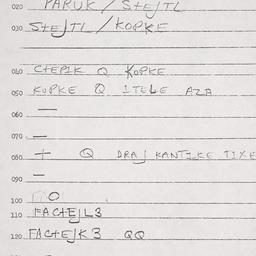 020 PARUK / StEJTL
030 StEJTL / KOPKE
040 CTEPIK Q KOPKE
050 KOPKE Q ITELE AZA
060 —
070 —
080 + Q DRAJ KANTIKE TIXE
090 —
100 O
110 FACtEJL3
120 FACtEJK3 QQ